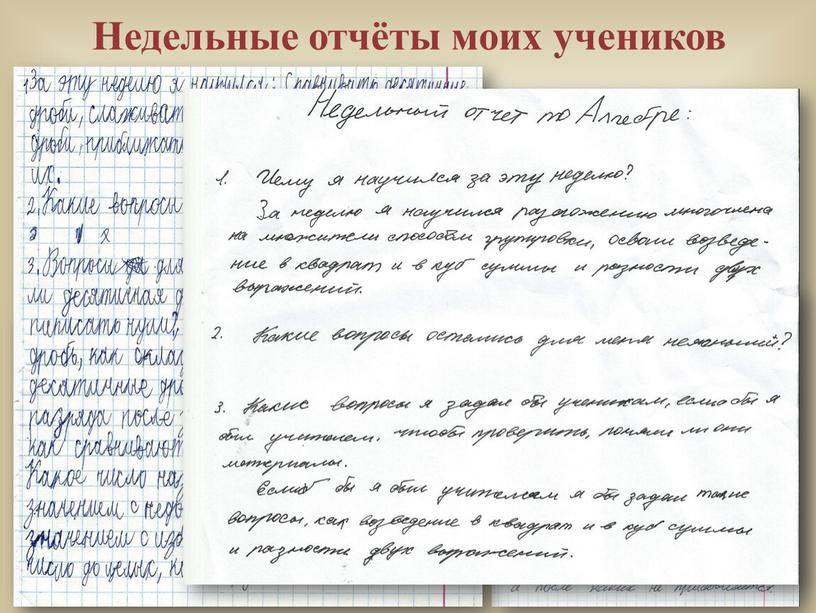 Недельные отчёты моих учеников
1. За эту неделю я научился: Сравнивать десятичные
дроби, складыват
дроби, приближат
их.
2. Какие вопросы
3. Вопросы для
ли десятичная д
приписать нули?
дробь, как склад
десятичные дро
разряда после
как сравнивают
Какое число на
значением с недо
значением с изб
число до целых, к
Недельный отчет по Алгебре:
1. Чему я научился за эту неделю?
За неделю я научился разложению многочлена
на множители способом группировки, освоил возведе-
ние в квадрат и в куб суммы и разности двух
выражений.
2. Какие вопросы остались для меня не
3. Какие вопросы я задал бы ученикам, если бы я
был учителем. чтобы проверить, поняли ли они
материалы.
Если б бы я был учителем я бы задал такие
вопросы, как возведение в квадрат и в куб суммы
и разности двух выражений.
а после каких не